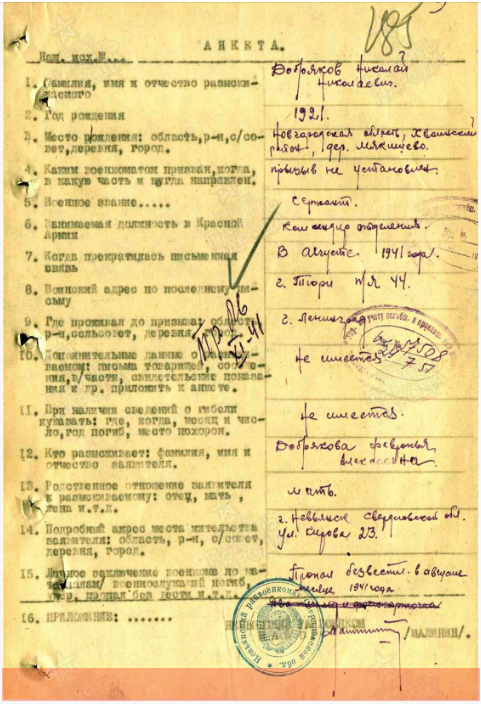 485
АНКЕТА.
Наш. исх.№...
1. Фамилия, имя и отчество разыски-
ваемого
Добряков Николай
Николаевич.
2. Год рождения
1921.
3. Место рождения: область,р-н,с/со-
вет,деревня, город.
Новгородская область, Хвоинский
район, дер. Мякишево.
4. Каким военкоматом призван,когда,
в какую часть и куда направлен.
призыв не установлен
5. Военное звание.....
Сержант.
6. Занимаемая должность в Красной
Армии
командир отделения.
7. Когда прекратилась письменная
связь
В Августе 1941 года.
8. Воинский адрес по последнему пи-
сьму
г. Тюри п/я 44.
9. Где проживал до призыва: область
р-н,сельсовет, деревня, город.
г. Ленинград
10. Дополнительные данные о разыски-
ваемом: письма товарищей, сообще-
ния,в/части, свидетельские показа-
ния и др. приложить к анкете.
не имеется
11. При наличии сведений о гибели
указать: где, когда, месяц и чис-
ло,год погиб, место похорон.
не имеется.
12. Кто разыскивает: фамилия, имя и
отчество заявителя.
Добрякова Февронья
Алексеевна
13. Родственное отношение заявителя
к разыскиваемому: отец, мать ,
жена и.т.д.
мать.
14. Подробный адрес места жительства
заявителя: область, р-н, с/совет,
деревня, город.
г. Невьянск Свердловской обл.
ул. Кирова 23.
15. Личное заключение военкома по ма-
териалам: военнослужащий погиб,
умер, пропал без вести и.т.д.
Пропал безвести в августе
месяце 1941 года
16. ПРИЛОЖЕНИЕ: .......
/МАЛИНИН/.